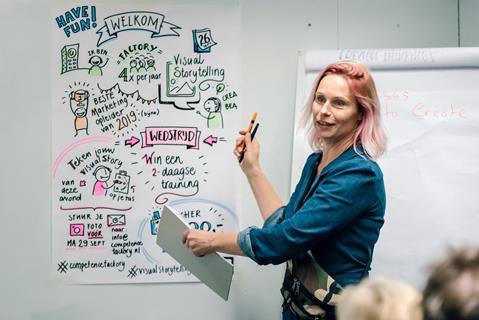 HAVE FUN!
WELKOM
26
IK BEN
FACTORY
4x per jaar
Visual
Storytelling
BESTE
Marketing
opleider
van
2019
(bijna)
WEDSTRIJD
Teken jouw
Visual
Story
van
deze
avond
Win een
2-daagse
training
STUUR JE
FOTO
VÓÓR
MA 29 SEPT
naar
info@
competence
factory.nl
# competencefactory
# visualstory
to Create